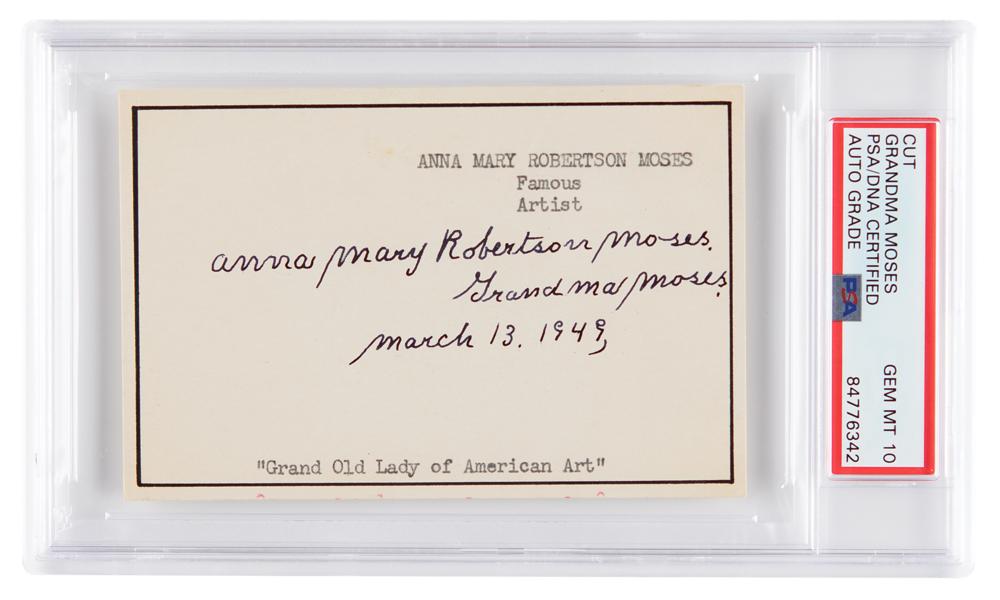 ANNA MARY ROBERTSON MOSES
Famous
Artist
anna mary Robertson moses.
Grandma moses.
march 13. 1949,
"Grand Old Lady of American Art"
CUT
GRANDMA MOSES
PSA/DNA CERTIFIED
AUTO GRADE
GEM MT 10
84776342
PSA